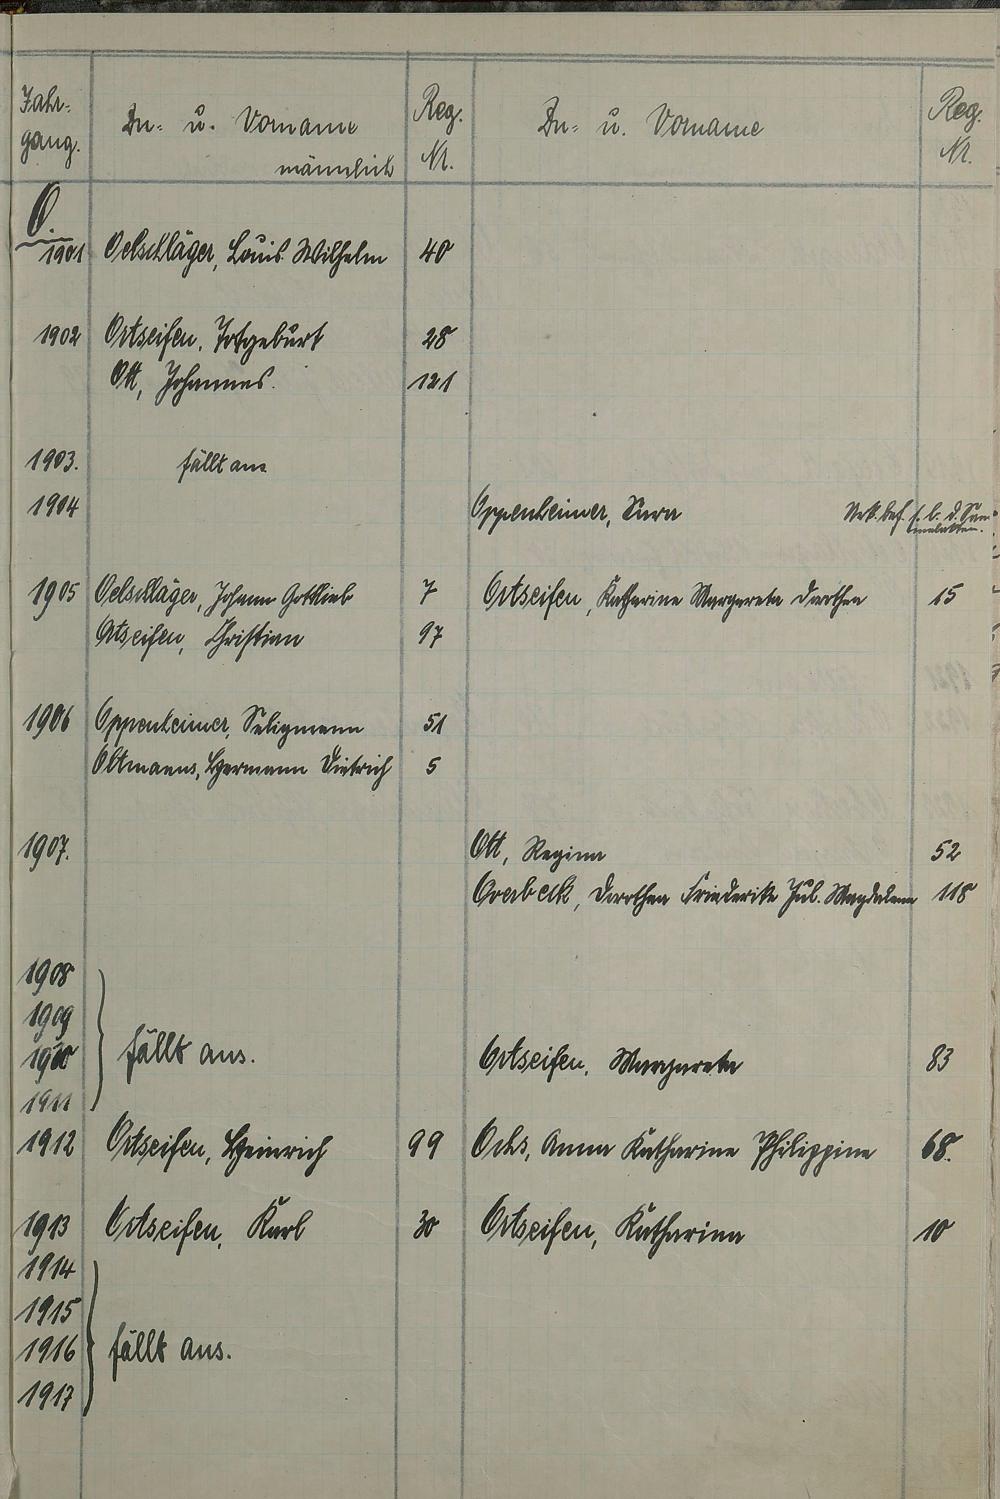 Jahr- Zu- u. Vorname Reg. Zu- u. Vorname Reg.
gang. männlich Nr. Nr.
O.
1901 Oelschläger, Louis Wilhelm 40
1902 Ortseifen, Totgeburt 28
Ott, Johannes. 121
1903. fällt aus
1904 Oppenheimer, Sara Urk. bef. s. b. d. Sam-
melakten.
1905 Oelschläger, Johann Gottlieb 7 Ortseifen, Katharine Margareta Dorothea 15
Ortseifen, Christian 97
1906 Oppenheimer, Seligmann 51
Oltmanns, Hermann Dietrich 5
1907. Ott, Regina 52
Overbeck, Dorothea Friederike Jul. Magdalena 118
1908
1909
1910 fällt aus. Ortseifen, Margareta 83
1911
1912 Ortseifen, Heinrich 99 Ochs, Anna Katharine Philippine 68.
1913 Ortseifen, Karl 30 Ortseifen, Katharina 10
1914
1915
1916 fällt aus.
1917